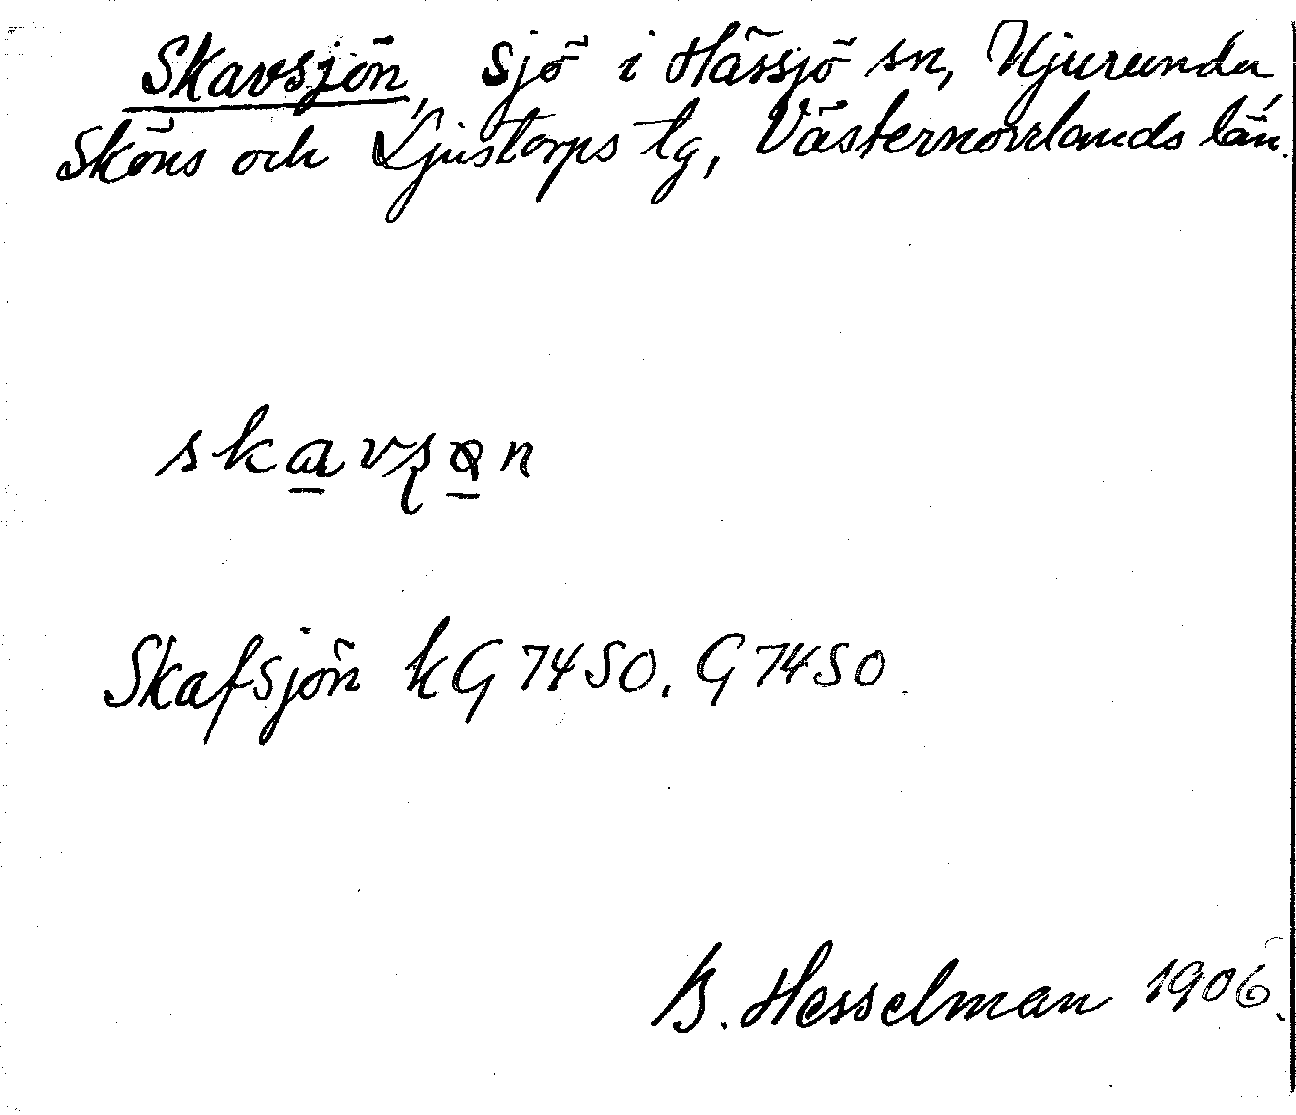 Skavsjön, sjö i Hässjö sn, Njurunda,
Sköns och Ljustorps tg, Västernorrlands län.
skavʂøn
Skafsjön kG 7450. G 7450.
B. Hesselman 1906.